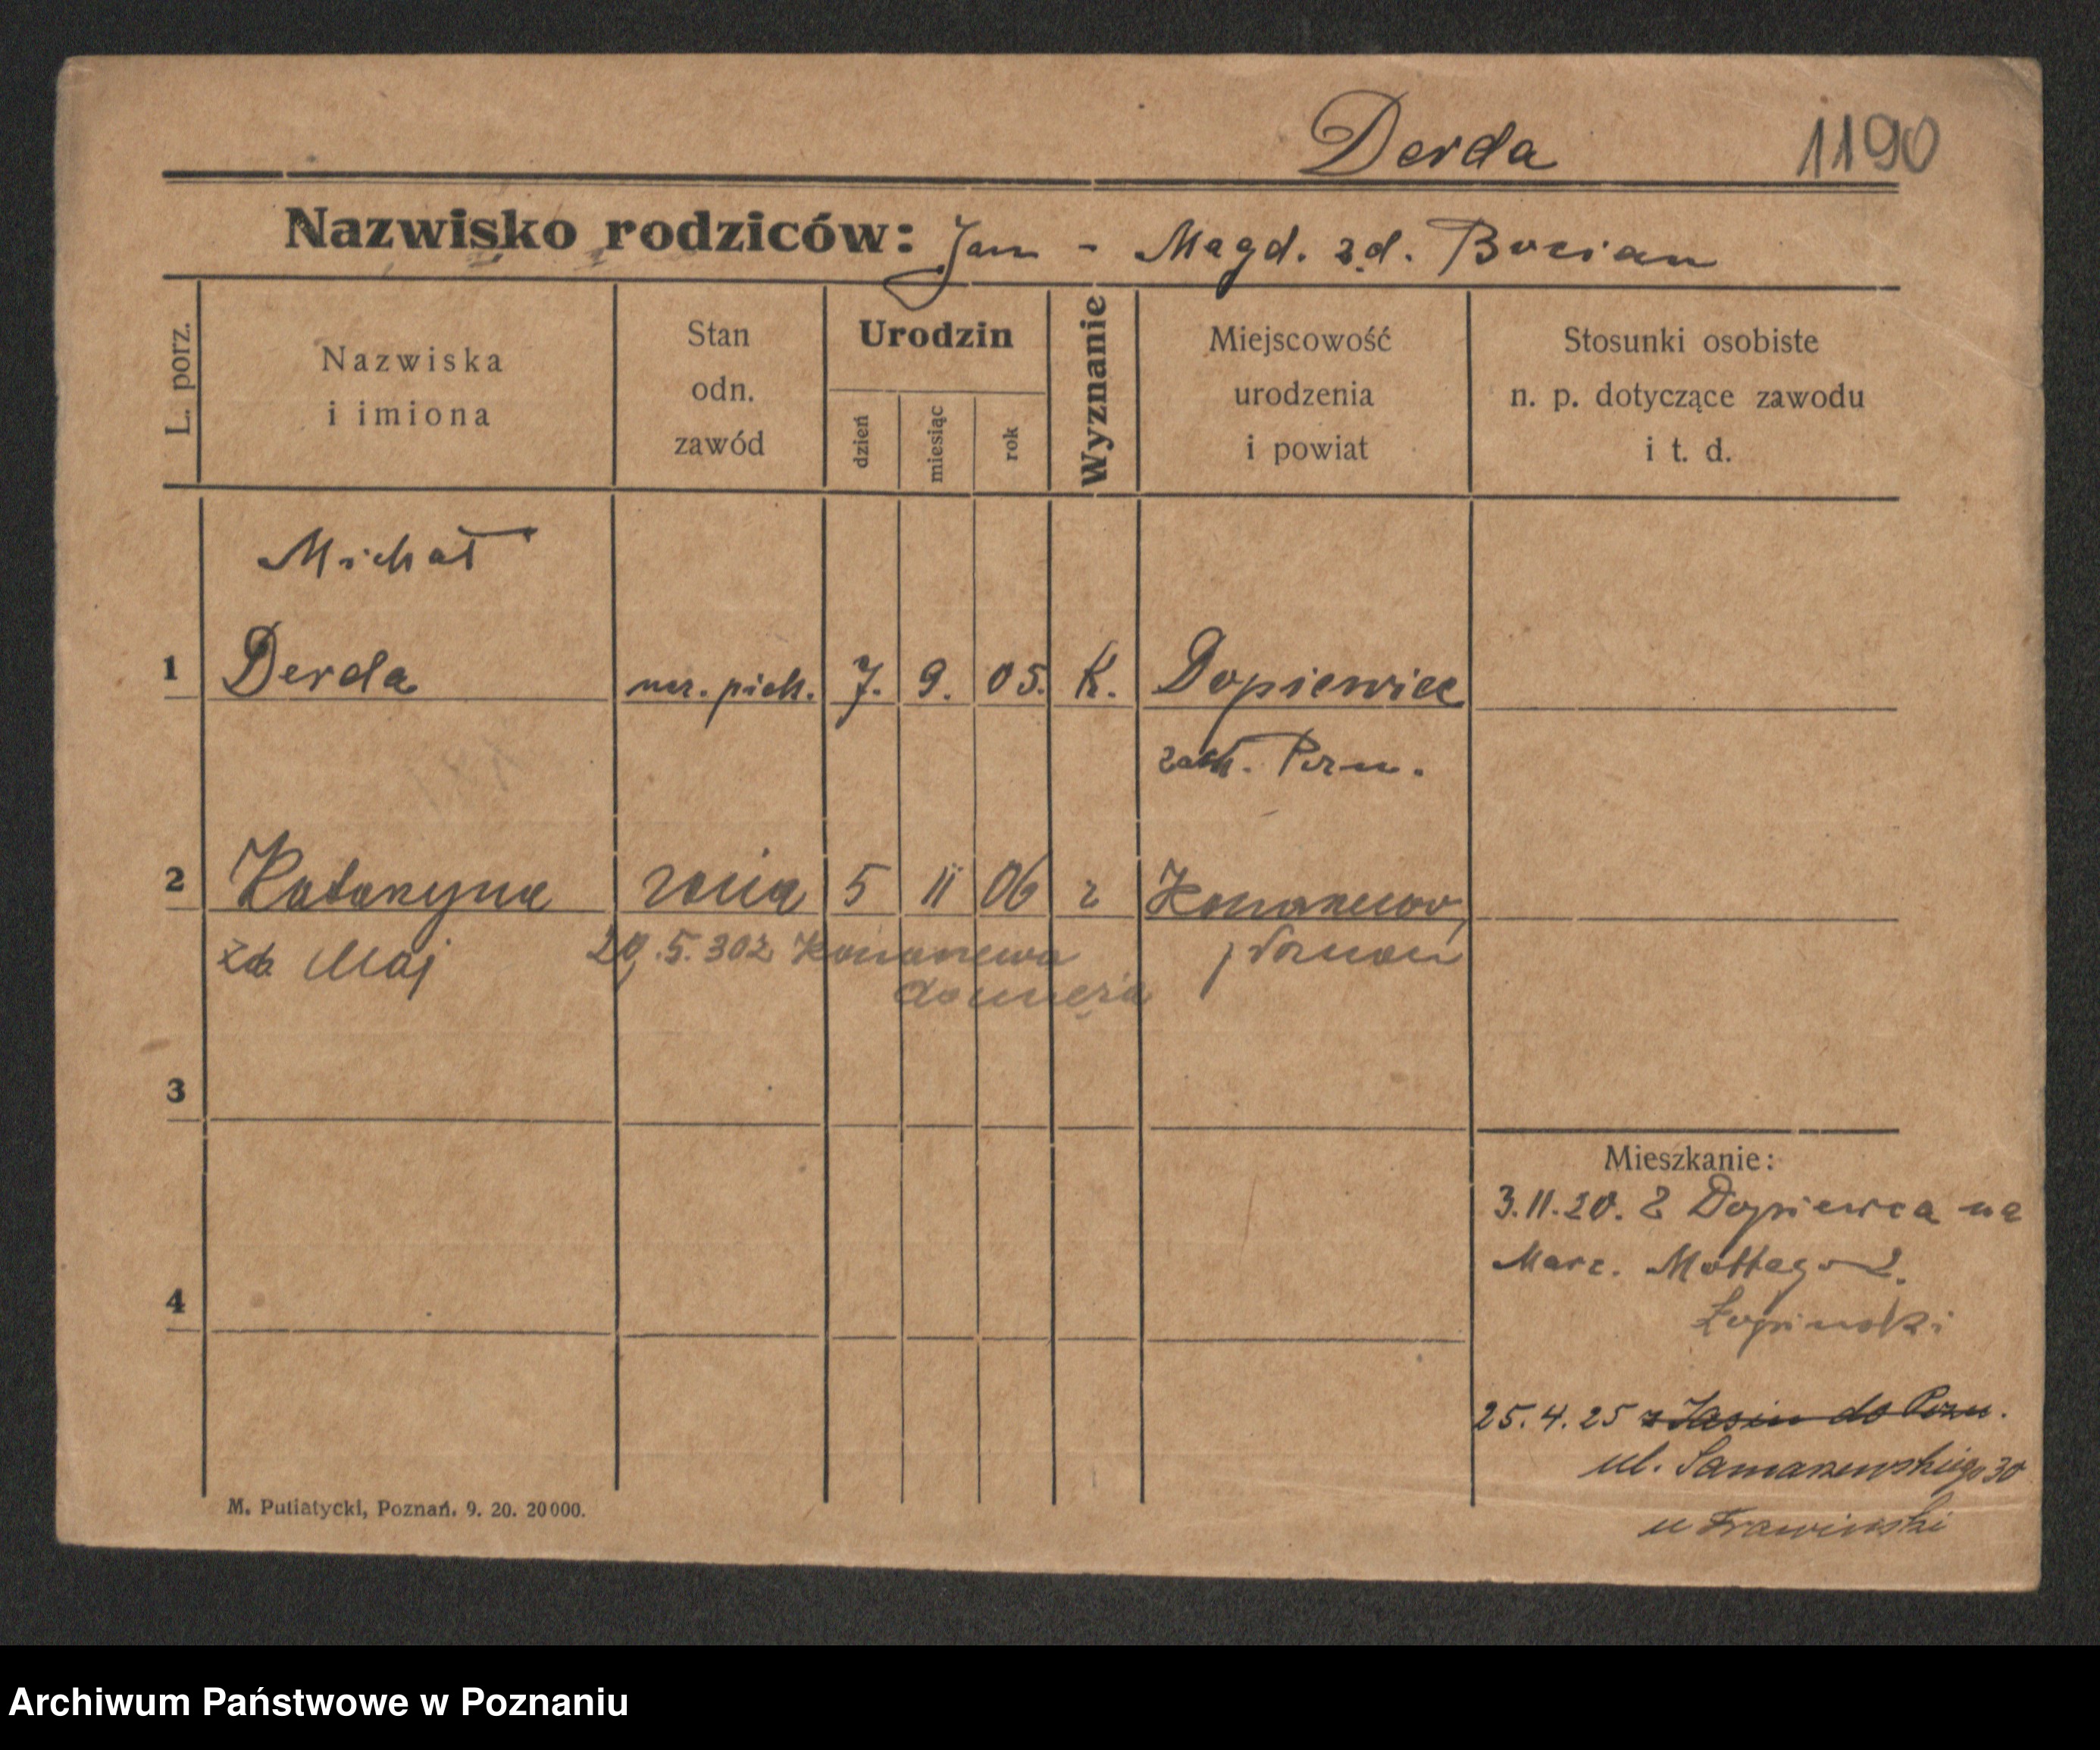 Derda 1190
Nazwisko rodziców: Jan - Magd. z d. Bocian
L. porz.
Nazwiska
i imiona
Stan
odn.
zawód
Urodzin
dzień
miesiąc
rok
Wyznanie
Miejscowość
urodzenia
i powiat
Stosunki osobiste
n. p. dotyczące zawodu
i t. d.
Michał
1 Derda ucz. piek. 7. 9. 05. k. Dopiewiec
zach. Pozn.
2 Katarzyna żona 5 11 06 r Konarzewo,
zd. Maj 29.5.30 z Konarzewa p Poznań
do męża
3
4
Mieszkanie:
3.11.20. z Dopiewca na
Marc. Mottego 2.
Łopiński
25.4.25 z Jasin do Pozn.
ul. Samarzewskiego 30
u Trawiński
M. Putiatycki, Poznań. 9. 20. 20000.
Archiwum Państwowe w Poznaniu